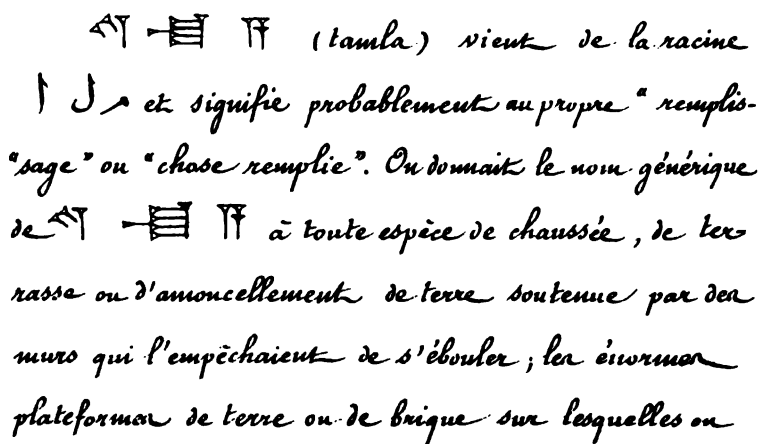 𒌓 𒆷 𒀀 (tamla) vient de la racine
م ل ا et signifie probablement au propre “ remplis-
“sage” ou “chose remplie”. On donnait le nom générique
de 𒌓 𒆷 𒀀 à toute espèce de chaussée, de ter-
rasse ou d'amoncellement de terre soutenue par des
murs qui l'empêchaient de s'ébouler ; les énormes
plateformes de terre ou de brique sur lesquelles on